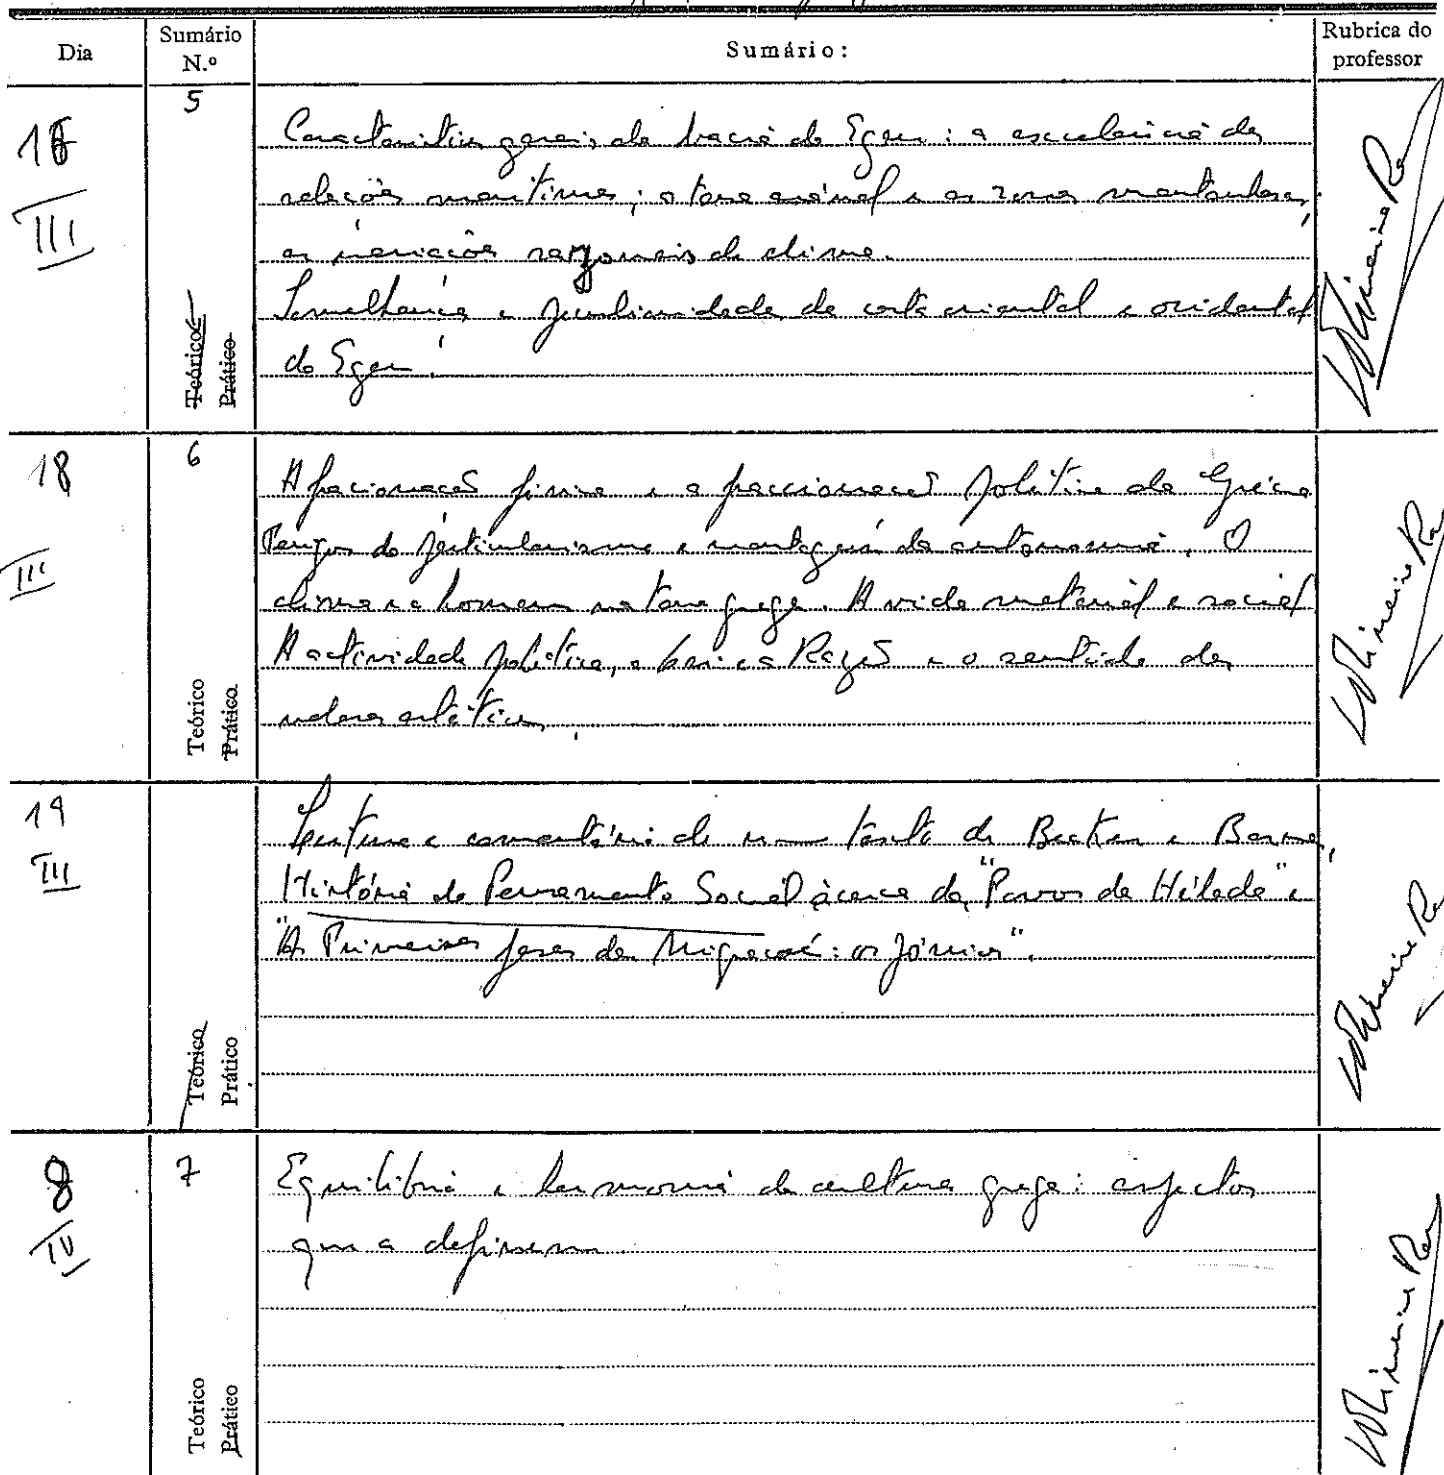 Dia
Sumário N.º
Sumário:
Rubrica do professor
16
III
5
Teórico
Prático
Características gerais da bacia do Egeu: a excelência das
relações marítimas; o torre e as zonas montanhosas,
as variações regionais do clima.
Semelhança e da costa oriental e ocidental
do Egeu.
18
III
6
Teórico
Prático
A física e a política da Grécia
Perigos do particularismo e vantagens da autonomia. O
clima e o homem na terra grega. A vida material e social
A actividade política, a Razão e o sentido dos
valores
19
III
Teórico
Prático
Leitura e comentário de um texto de Becker e Barnes,
História do Pensamento Social àcerca de "Povos da Hélade" e
"As Primeiras fases da Migração: os Jónios".
8
IV
7
Teórico
Prático
Equilíbrio e harmonia da cultura grega: aspectos
que a definem